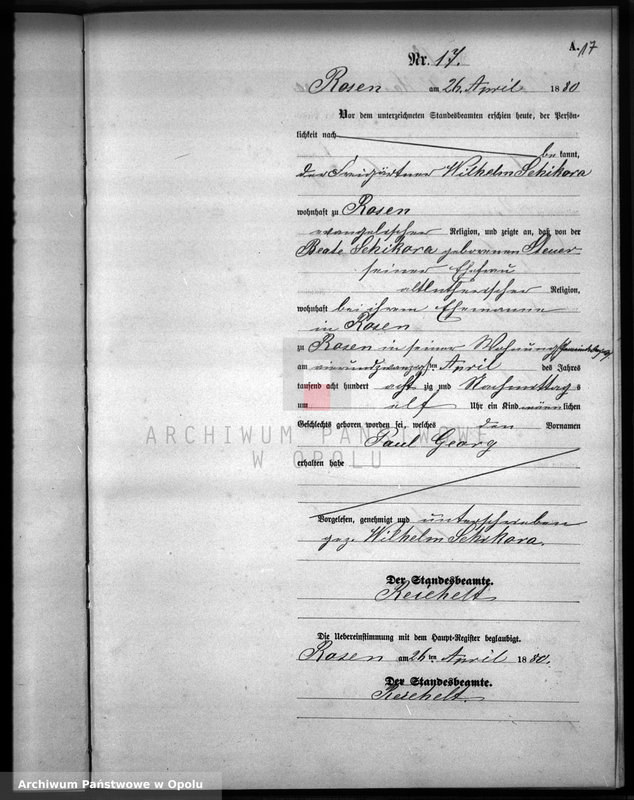 A. 17
Nr. 17.
Rosen am 26 April 1880
Vor dem unterzeichneten Standesbeamten erschien heute, der Persön-
lichkeit nach
be kannt,
der Freigärtner Wilhelm Schikora
wohnhaft zu Rosen
evangelischer Religion, und zeigte an, daß von der
Beate Schikora geborenen Steuer
seiner Ehefrau
altlutherischer Religion,
wohnhaft bei ihrem Ehemanne
in Rosen
zu Rosen in seiner Wohnung
am vierundzwanzigsten April des Jahres
tausend acht hundert achtzig und Nachmittags
um elf Uhr ein Kind männlichen
Geschlechts geboren worden sei, welches den Vornamen
Paul Georg
erhalten habe
ARCHIWUM PAŃSTWOWE
W OPOLU
Vorgelesen, genehmigt und unterschrieben
gez. Wilhelm Schikora.
Der Standesbeamte.
Reichelt
Die Uebereinstimmung mit dem Haupt-Register beglaubigt.
Rosen am 26ten April 1880.
Der Standesbeamte.
Reichelt.
Archiwum Państwowe w Opolu